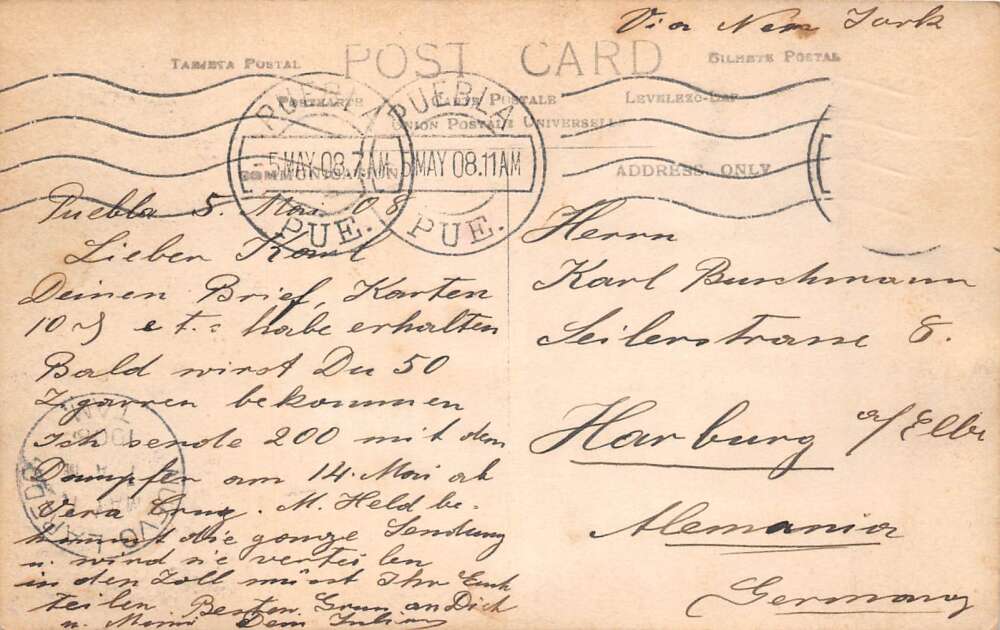 Via New York
TARJETA POSTAL
POST CARD
BILHETE POSTAL
POSTKARTE
CARTE POSTALE
LEVELEZŐ-LAP
UNION POSTALE UNIVERSELLE
ADDRESS ONLY
PUEBLA
-5 MAY 08.7 AM
PUE.
PUEBLA
MAY 08.11 AM
PUE.
Puebla 5. Mai. 08
Lieber Karl
Deinen Brief, Karten
etc: habe erhalten
Bald wirst Du 50
Zigarren bekommen
Ich sende 200 mit dem
Dampfer am 14. Mai ab
Vera Cruz. M. Held be-
kommt die ganze Sendung
u. wird sie verteilen
in den Zoll müsst Ihr Euch
teilen. Besten Gruss an Dich
u. Mimi Dein Julius
Herrn
Karl Buschmann
Seilerstrasse 8.
Harburg a/Elbe
Alemania
Germany
NUEVO LAREDO
TAM
1908